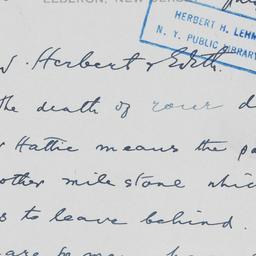 ELBERON, NEW JERSEY
HERBERT H. LEHM
N. Y. PUBLIC LIBRARY
Herbert & Edith.
the death of your d
Hattie means the pa
other milestone whic
s to leave behind.
are so many